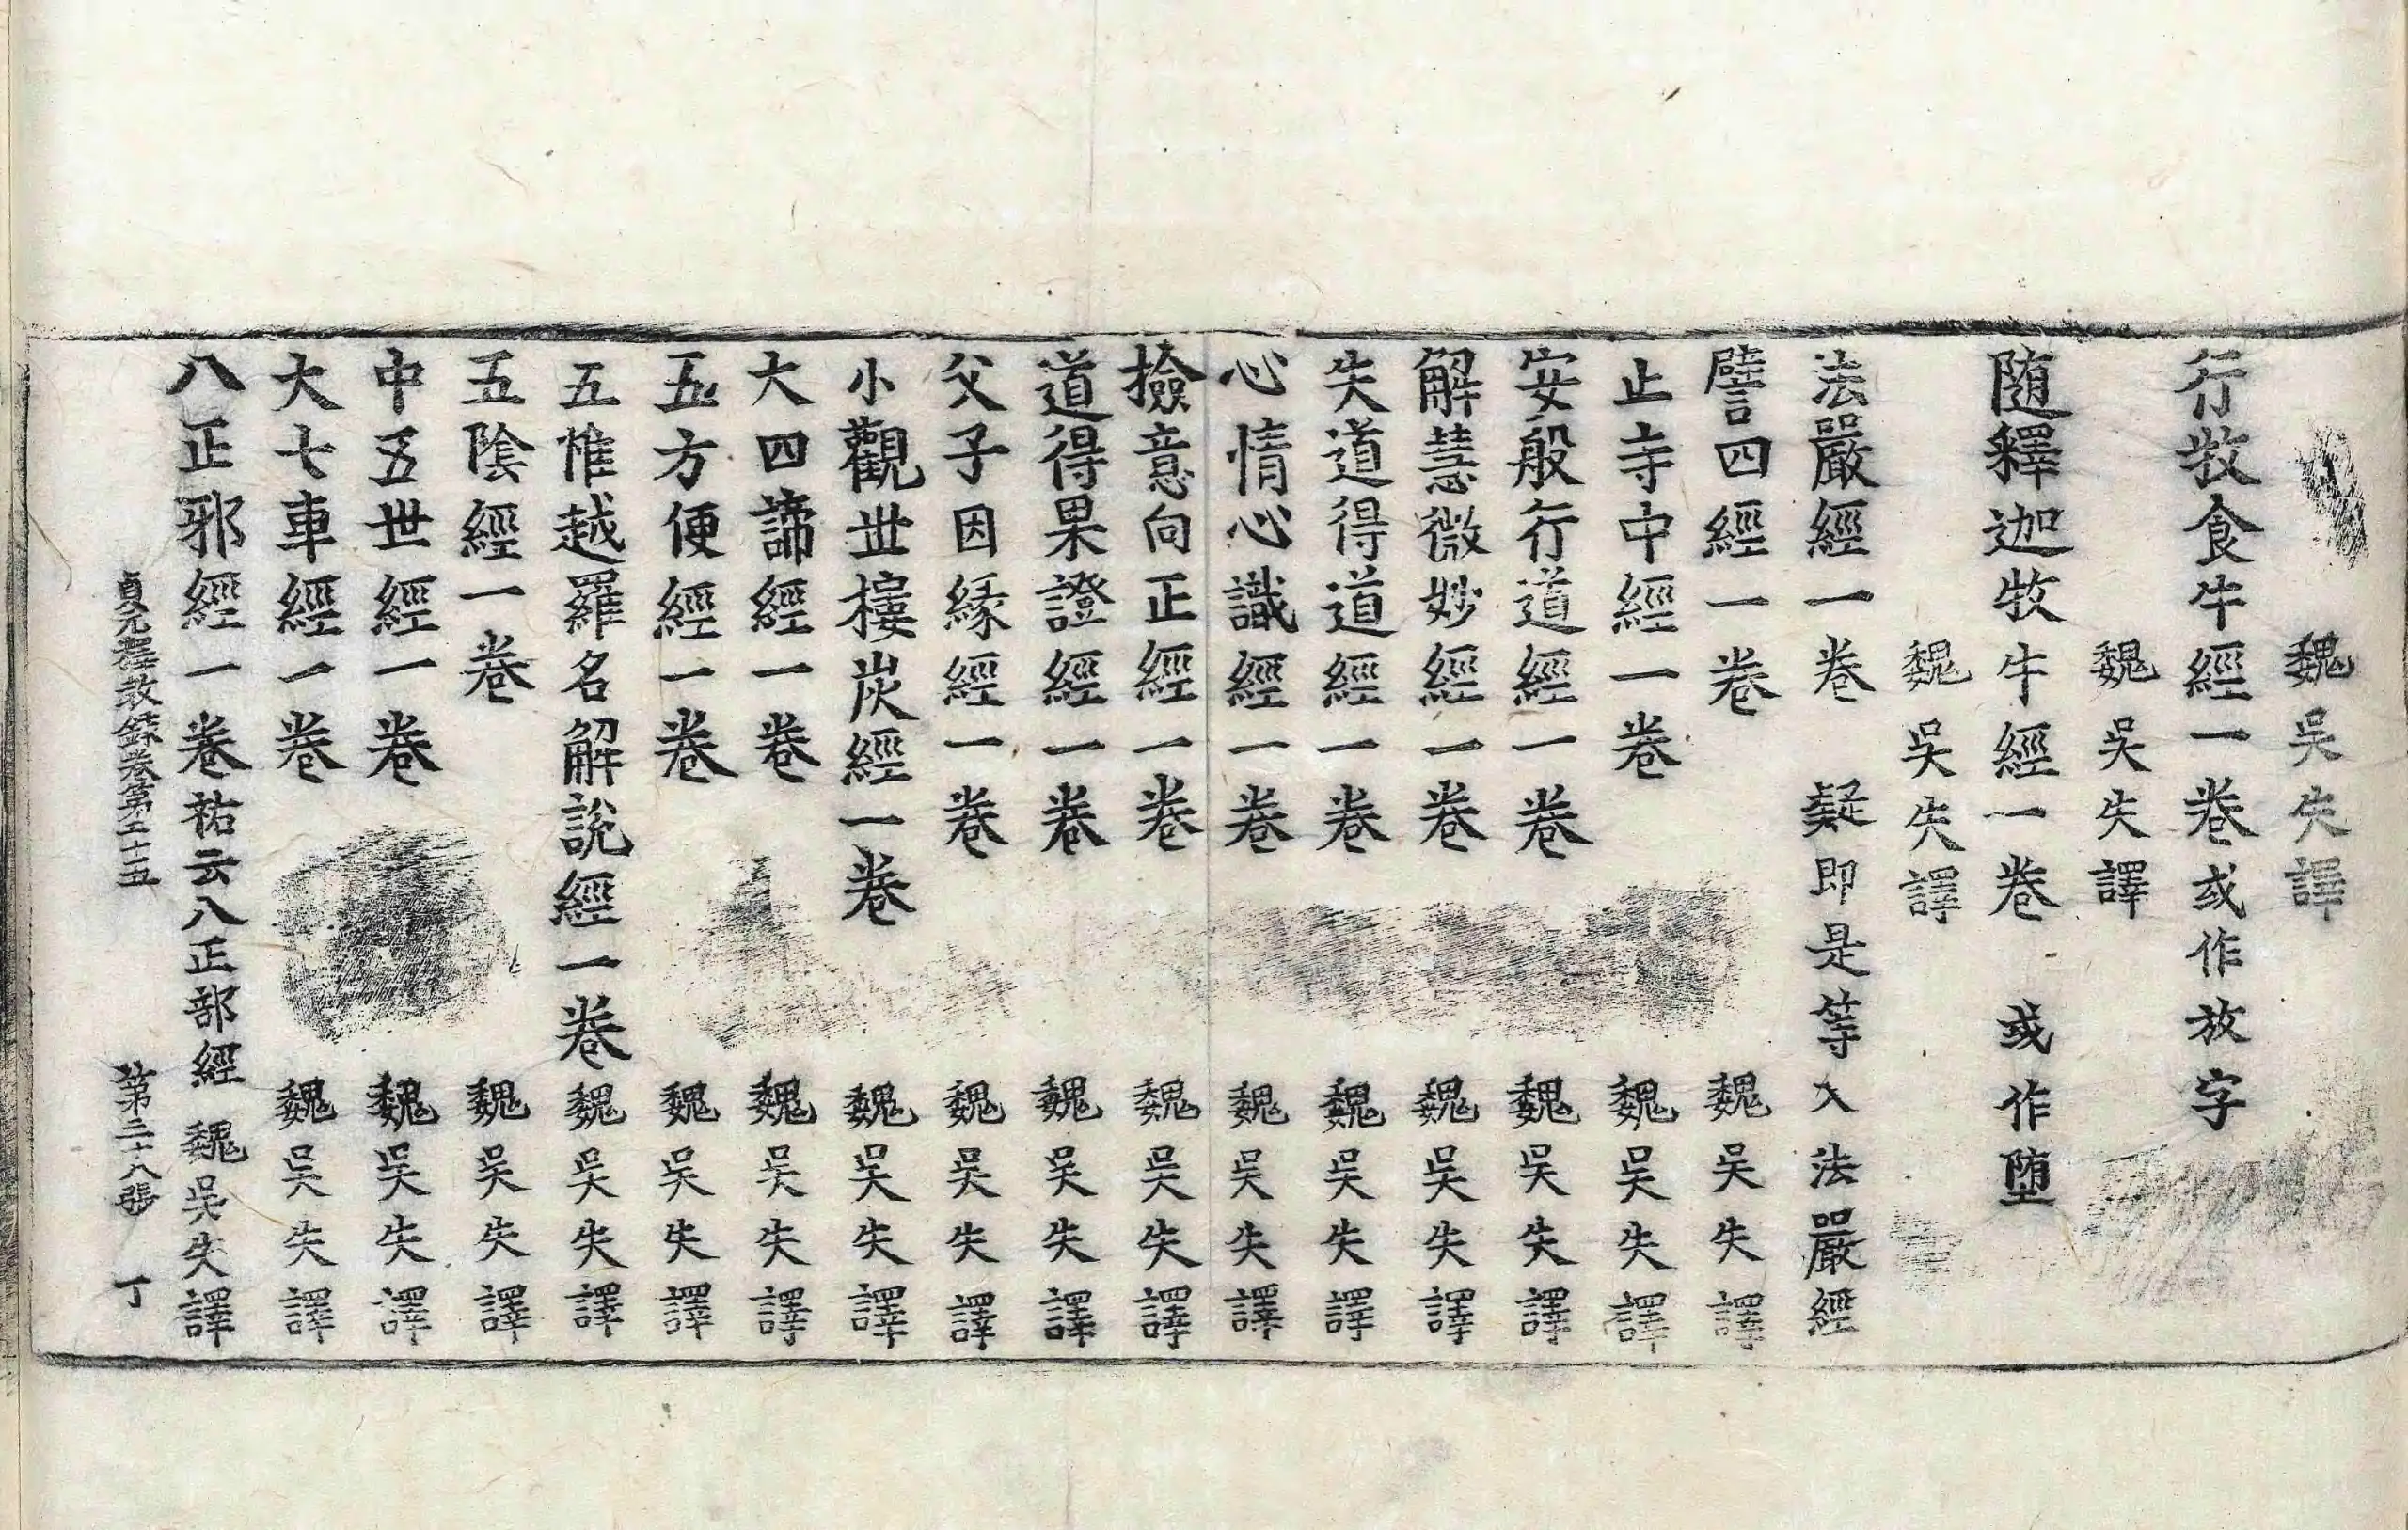 魏吳失譯
行牧食牛經一卷或作放字
魏吳失譯
随釋迦牧牛經一卷 或作堕
魏吳失譯
法嚴經一卷 疑即是等入法嚴經
譬四經一卷 魏吳失譯
止寺中經一卷 魏吳失譯
安般行道經一卷 魏吳失譯
解慧微妙經一卷 魏吳失譯
失道得道經一卷 魏吳失譯
心情心識經一卷 魏吳失譯
撿意向正經一卷 魏吳失譯
道得果證經一卷 魏吳失譯
父子因緣經一卷 魏吳失譯
小觀世樓炭經一卷 魏吳失譯
大四諦經一卷 魏吳失譯
五方便經一卷 魏吳失譯
五惟越羅名解說經一卷 魏吳失譯
五陰經一卷 魏吳失譯
中五世經一卷 魏吳失譯
大七車經一卷 魏吳失譯
八正邪經一卷祐云八正部經 魏吳失譯
貞元釋教錄卷第二十五 第二十八張 丁